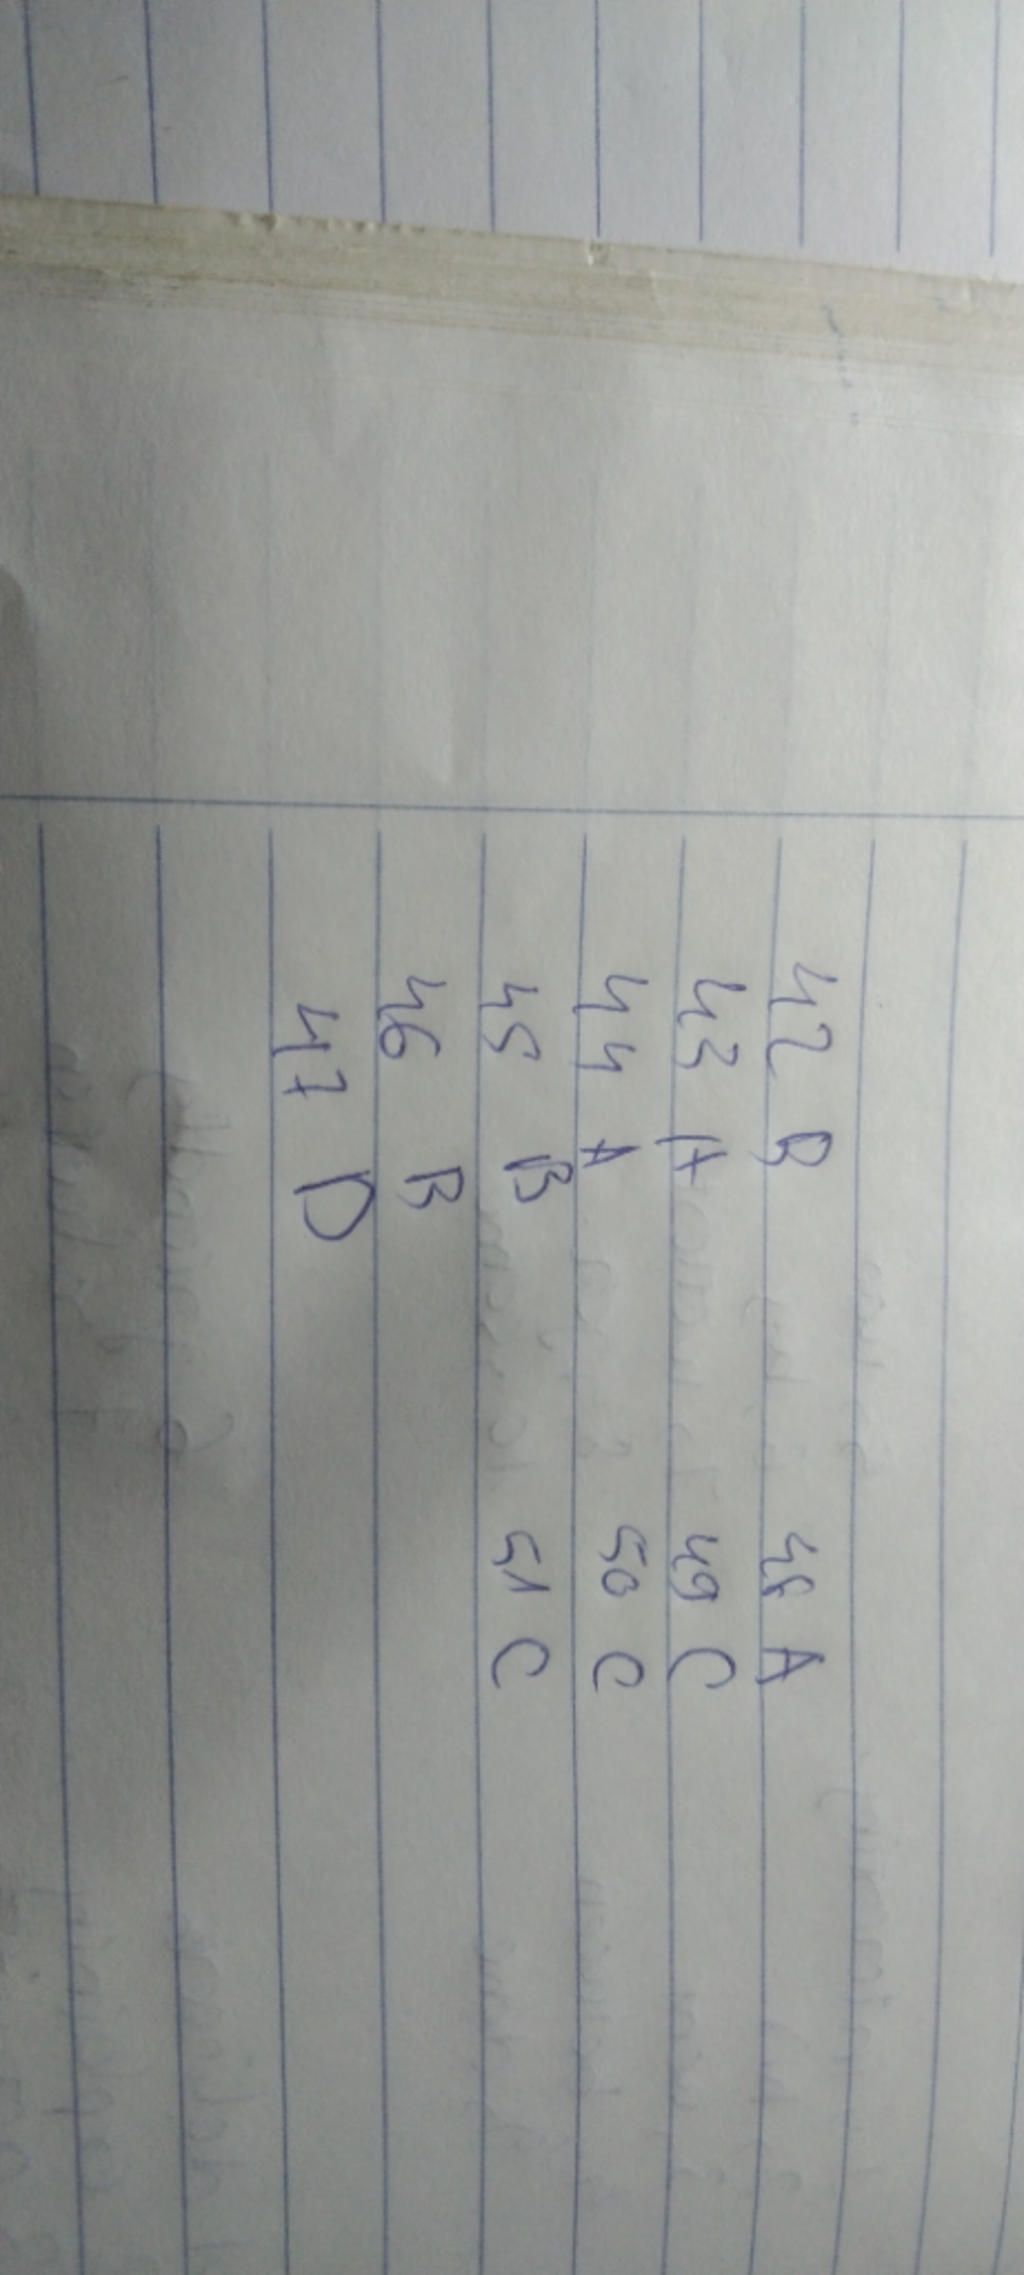 42 B 48 A
43 A 49 C
44 A 50 C
45 B 51 C
46 B
47 D